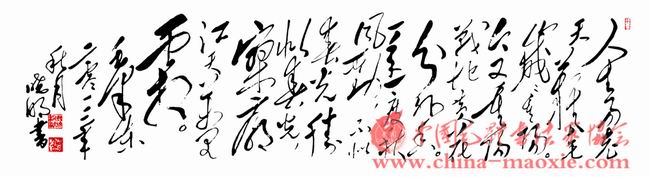 人生易老
天难老
岁岁重阳
今又重阳
战地黄花
分外香
一年一度秋
风劲不似
春光胜
似春光
寥廓
江天万里
霜。
二零一二年
秋月
晓明書
www.china-maoxie.com